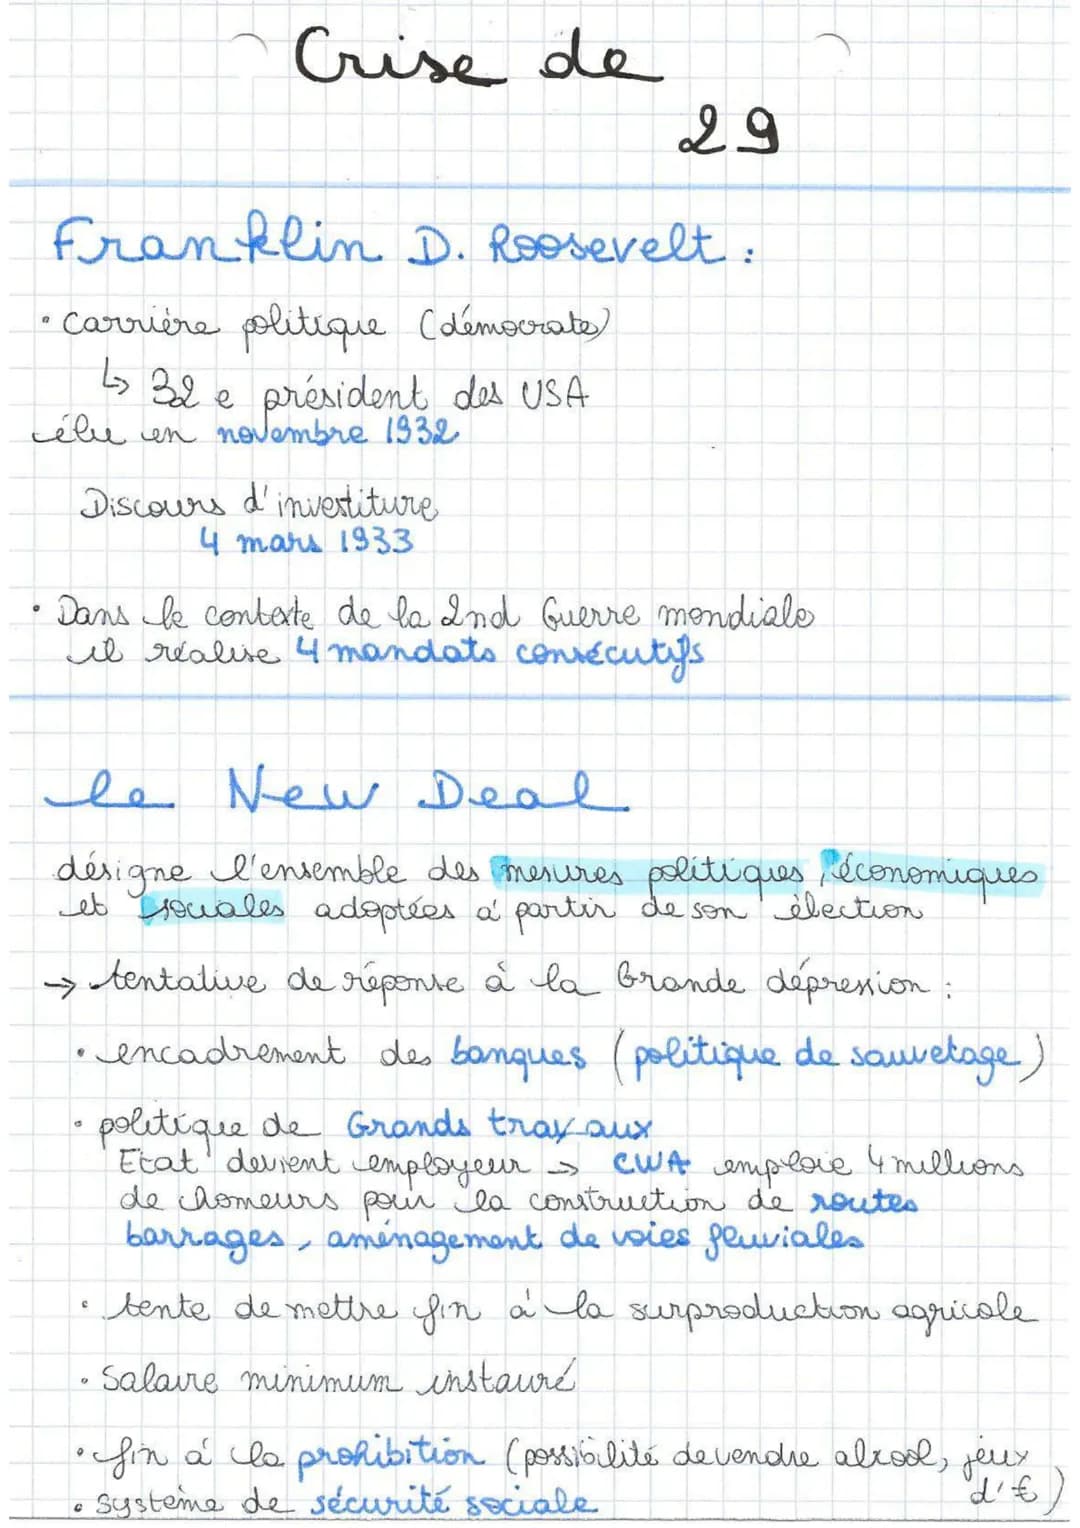 Crise de
29
Franklin D. Roosevelt :
• Carrière politique (démocrate)
↳ 32 e président des USA
élu en novembre 1932
Discours d'investiture
4 mars 1933
• Dans le contexte de la 2nd Guerre mondiale
il réalise 4 mandats consécutifs
le New Deal
désigne l'ensemble des mesures politiques, économiques
et sociales adoptées à partir de son élection
→ tentative de réponse à la Grande dépression :
• encadrement des banques (politique de sauvetage)
• politique de Grands travaux
Etat devient employeur → CWA emploie 4 millions
de chomeurs pour la construction de routes
barrages, aménagement de voies fluviales
• tente de mettre fin à la surproduction agricole
• Salaire minimum instauré
• fin à la prohibition (possibilité de vendre alcool, jeux
d'€)
• système de sécurité sociale